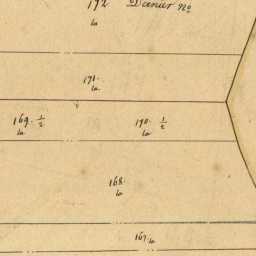 172 Danur No
la
171.
la
169. 1/2
la
170. 1/2
la
168.
la
167. la